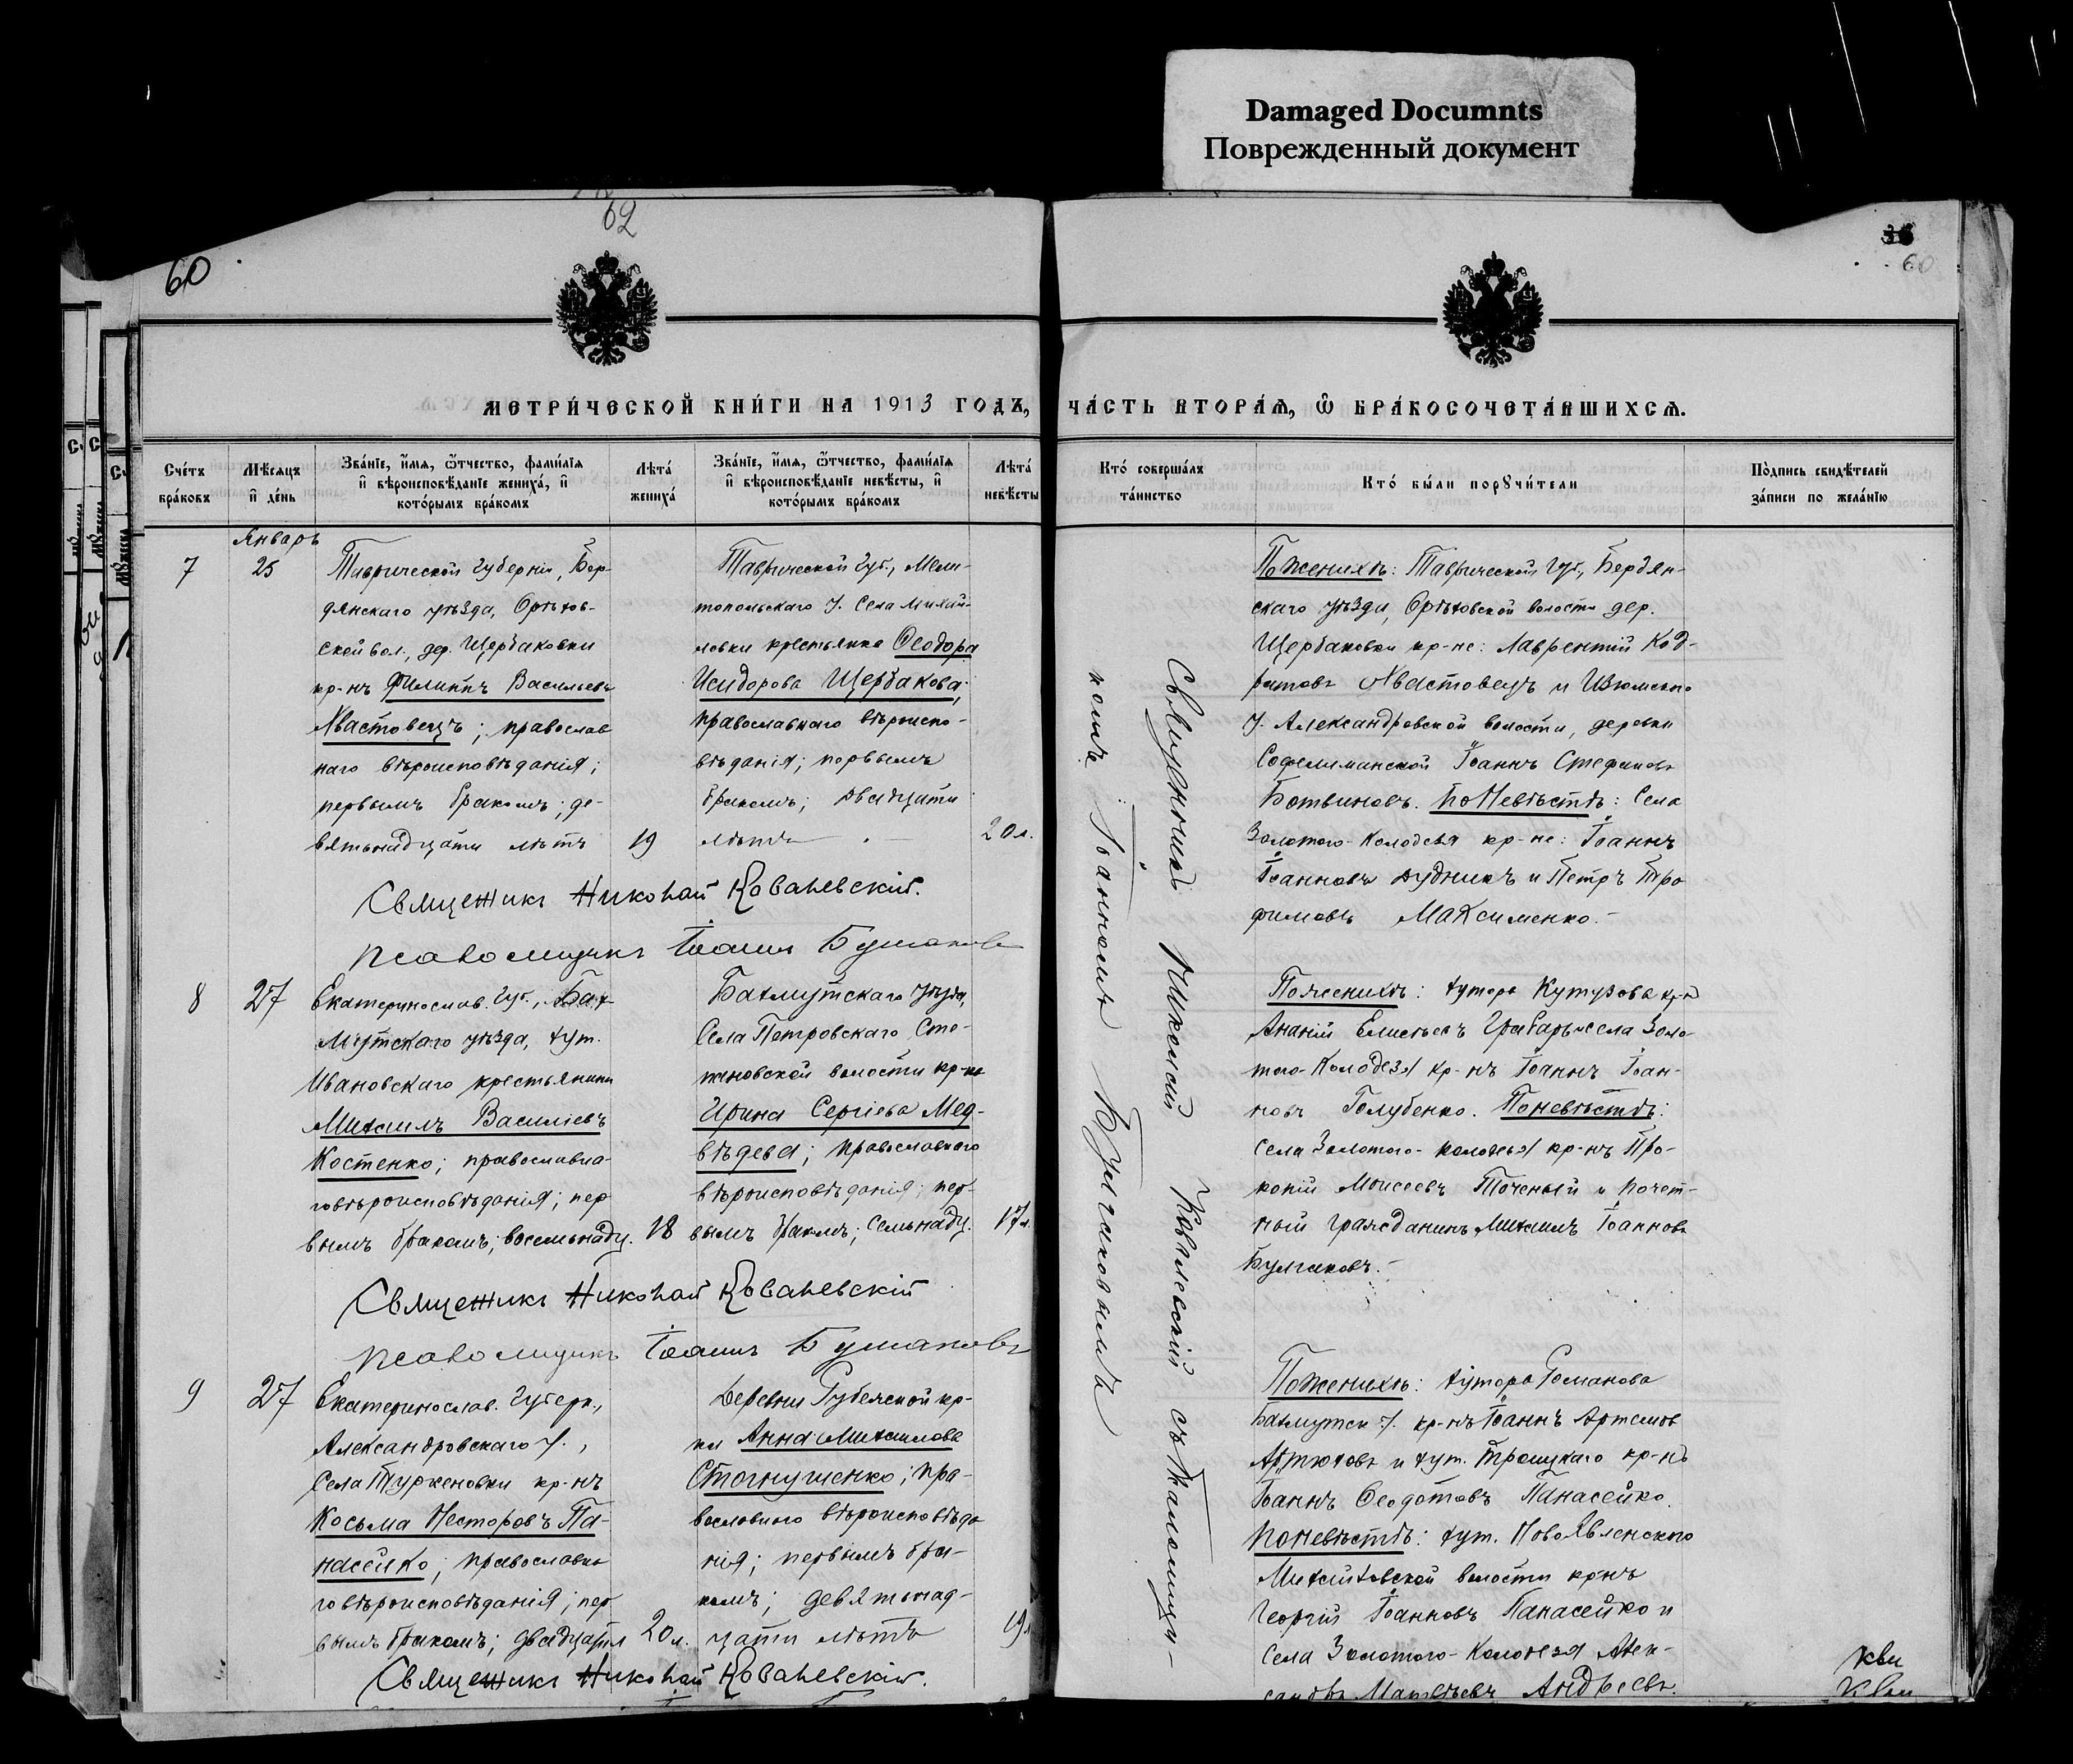 Damaged Documnts
Поврежденный документ
62
60
36
60
МЕТРИ́ЧЕСКОЙ КНИ́ГИ НА 1913 ГОДЪ,
ЧА́СТЬ ВТОРА́Ѧ, Ѽ БРА́КОСОЧЕТА́ВШИХСѦ.
Счéтъ бра́ковъ
Мѣ́сяцъ и҆ де́нь
Зва́нїе, и҆́мѧ, ѻ҆́тчество, фами́лїѧ и҆ вѣроисповѣ́данїе жениха́, и҆ кото́рымъ бра́комъ
Лѣта́ жениха́
Зва́нїе, и҆́мѧ, ѻ҆́тчество, фами́лїѧ и҆ вѣроисповѣ́данїе невѣ́сты, и҆ кото́рымъ бра́комъ
Лѣта́ невѣ́сты
Кто̀ соверша́лъ та́инство
Кто̀ бы́ли порꙋчи́тели
По́дпись свидѣ́телей за́писи по жела́нїю
Январь
7
25
Таврической губерніи, Бер-
дянскаго уѣзда, Орѣхов-
ской вол., дер. Щербаковки
кр-нъ Филиппъ Васильевъ
Хвастовецъ; православ
наго вѣроисповѣданія;
первымъ бракомъ; де-
вятьнадцати лѣтъ
19
Таврической губ., Мели-
топольскаго у. Села Михай-
ловки крестьянка Ѳеодора
Исидорова Щербакова;
православнаго вѣроиспо-
вѣданія; первымъ
бракомъ; двадцати
лѣтъ
20 л.
Священникъ Николай Ковалевскій.
псаломщикъ Іоаннъ Булгаковъ
По женихѣ: Таврической губ., Бердян-
скаго уѣзда, Орѣховской волости дер.
Щербаковки кр-не: Лаврентій Код-
ратовъ Хвастовецъ и Изюмскаго
у. Александровской волости, деревни
Софелимонской Іоаннъ Стефановъ
Ботвиновъ. По Невѣстѣ: Села
Золотого-Колодезя кр-не: Іоаннъ
Іоанновъ Дудникъ и Петръ Тро
фимовъ Максименко.
8
27
Екатериносл​ав. губ., Бах-
мутскаго уѣзда, хут.
Ивановскаго крестьянинъ
Михаилъ Василіевъ
Костенко; православна-
го вѣроисповѣданія; пер
вымъ бракомъ; восемьнадц.
18
Бахмутскаго уѣзда,
Села Петровскаго Сте-
пановской волости кр-ка
Ирина Сергіева Мед-
вѣдева; православнаго
вѣроисповѣданія; пер-
вымъ бракомъ; семьнадц.
17 л.
Священникъ Николай Ковалевскій
псаломщикъ Іоаннъ Булгаковъ
По женихѣ: хутора Кутузова кр-нъ
Ананій Елисеевъ Грабарь и села Золо-
того-Колодезя кр-нъ Іоаннъ Іоан-
новъ Голубенко. По невѣстѣ:
села Золотого-Колодезя кр-нъ Про-
копій Моисеевъ Точеный и почет-
ный гражданинъ Михаилъ Іоанновъ
Булгаковъ.
9
27
Екатериносл​ав. губерн.,
Александровскаго у.,
Села Туркеновки кр-нъ
Косьма Несторовъ Па-
насейко; православна
го вѣроисповѣданія; пер
вымъ бракомъ; двадцати
20 л.
Деревни кр-
ка Анна Михаилова
Стогнушенко; пра-
вославного вѣроисповѣда
нія; первымъ бра-
комъ; девятьнад-
цати лѣтъ
19 л
Священникъ Николай Ковалевскій.
По женихѣ: хутора Романова
Бахмутск у. кр-нъ Іоаннъ Артемов
Артюховъ и хут. Троицкаго кр-нъ
Іоаннъ Ѳеодотовъ Панасейко.
По невѣстѣ: хут. Новоявленскаго
Михайловской волости кр-нъ
Георгій Іоанновъ Панасейко и
Села Золотого-Колодезя Алек-
сандръ Матвѣевъ Андреевъ.
Священникъ Николай Ковалевскій съ псаломщи-
комъ Іоанномъ Булгаковымъ